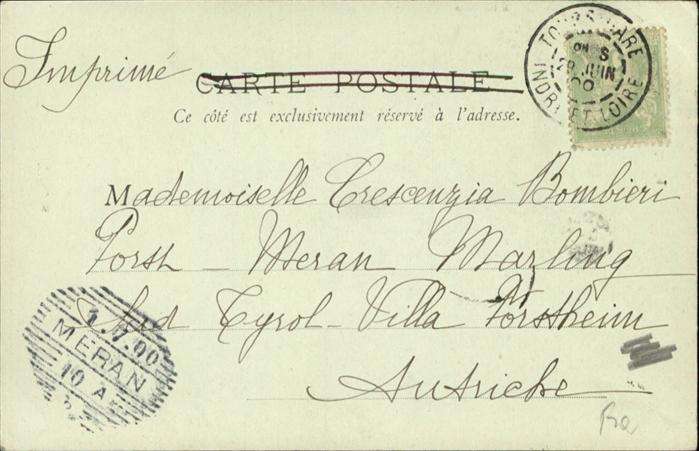 Imprimé
CARTE POSTALE
Ce côté est exclusivement réservé à l'adresse.
TOURS GARE
28 JUIN
00
INDRE ET LOIRE
Mademoiselle Crescenzia Bombieri
Forst - Meran Marling
Sud Tyrol - Villa Forstheim
Autriche
1.7.00
MERAN
10 A